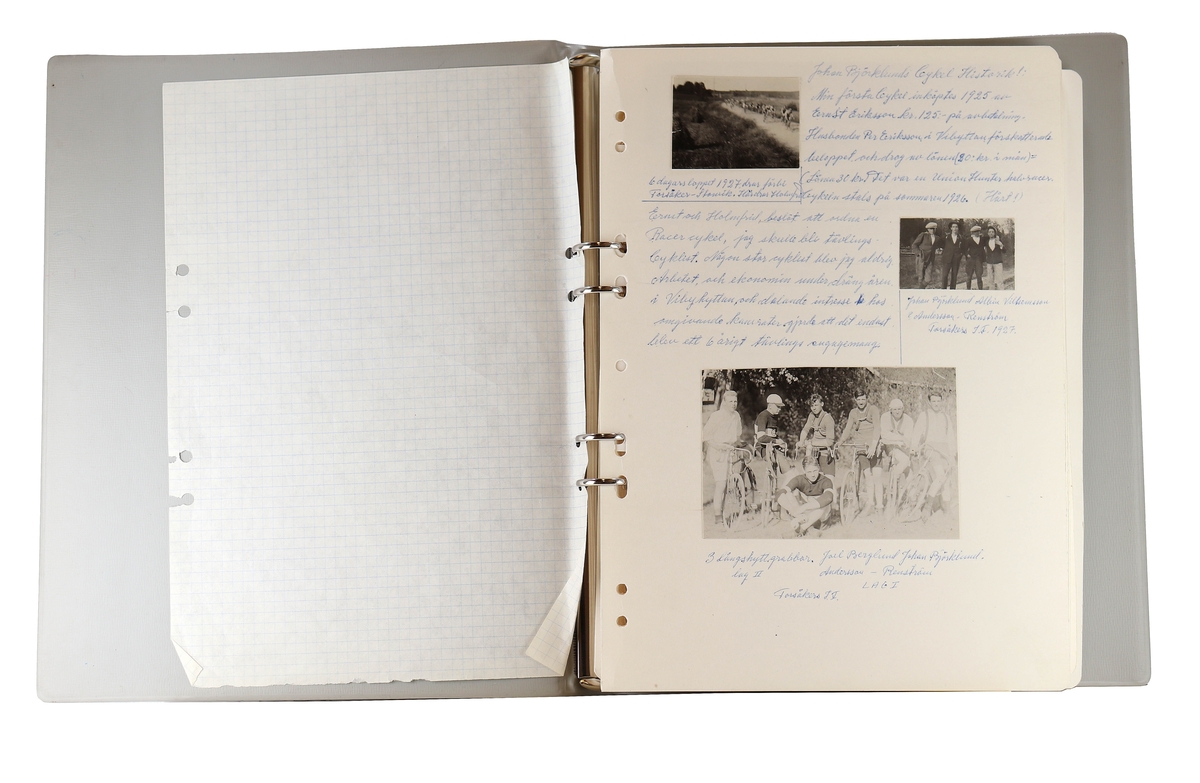 Johan Björklunds Cykel Historik!:
Min första Cykel inköptes 1925 av
Ernst Eriksson kr. 125:- på avbetalning.
Husbonden Per Eriksson, i Vibyttan förskotterade
beloppet, och drog av lönen (20:- kr. i mån)=
(Lönen 30 kr.) Det var en Union Hunter halvracer.
Cykeln stals på sommaren 1926. (Hårt!)
6 dagars loppet 1927 drar förbi
Torsåker-Storvik.
Ernst och Holmfrid, beslöt att ordna en
Racer cykel, jag skulle bli tävlings-
Cyklist. Någon stor cyklist blev jag aldrig
Arbetet, och ekonomin under dräng åren,
i Vibyhyttan, och dalande intresse hos
omgivande kamrater, gjorde att det endast
blev ett 6 årigt tävlings engagemang.
Johan Björklund Albin
Andersson - Renström
Torsåkers I.F. 1927.
3 Långhytt. grabbar.
Lag II
Joel Berglund Johan Björklund.
Andersson - Renström
LAG I
Torsåkers I.F.